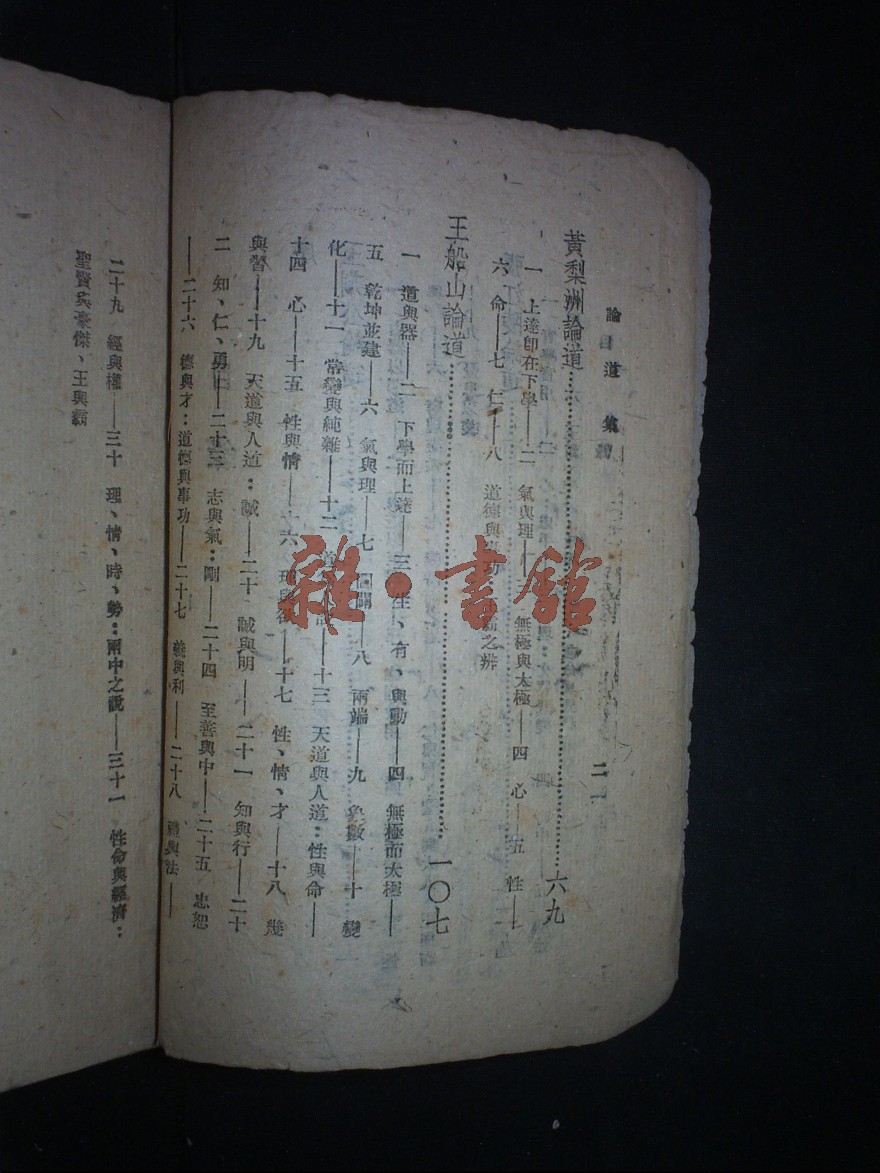 論道集
二
黃梨洲論道……………六九
一 上達即在下學——二 氣與理—— 無極與太極——四 心——五 性——
六 命——七 仁——八 道德與事功 之辨
王船山論道……………一〇七
一 道與器——二 下學而上達——三 生、有、與動——四 無極而太極——
五 乾坤並建——六 氣與理——七 闔——八 兩端——九 象數——十 變
化——十一 常變與純雜——十二 ——十三 天道與人道：性與命——
十四 心——十五 性與情——十六 理與欲——十七 性、情、才——十八 幾
與習——十九 天道與人道：誠——二十 誠與明——二十一 知與行——二十
二 知、仁、勇——二十三 志與氣：剛——二十四 至善與中——二十五 忠恕
——二十六 德與才：道德與事功——二十七 義與利——二十八 禮與法——
二十九 經與權——三十 理、情、時、勢：兩中之說——三十一 性命與經濟：
聖賢與豪傑、王與霸
雜·書館